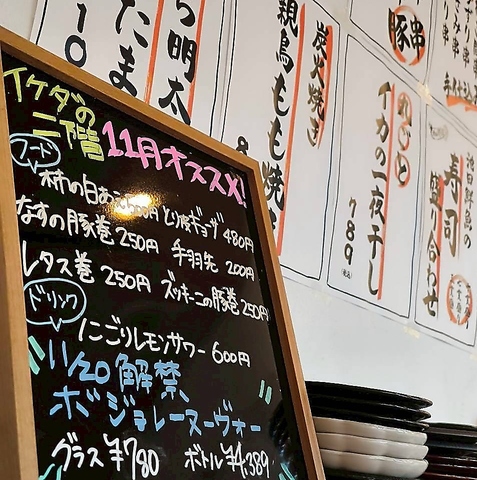 イケダの
二階
11月オススメ!
フード
柿の白あえ500円 とり皮ギョーザ 480円
なすの豚巻 250円 手羽先 200円
レタス巻 250円 ズッキーニの豚巻 250円
ドリンク
にごりレモンサワー 600円
11/20解禁
ボジョレーヌーヴォー
グラス ¥780 ボトル ¥4,389
ら明太
たま
10
炭火焼き
親鳥もも焼き
8
まるごと
イカの一夜干し
789
(税込)
豚串
池田鮮魚の
寿司
盛り合わせ